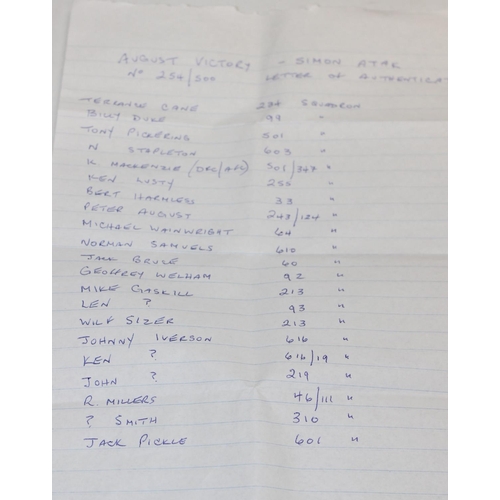 AUGUST VICTORY - SIMON ATAK
No 254/500 LETTER OF AUTHENTICAT
TERRANCE CANE 234 SQUADRON
BILLY DUKE 99 "
TONY PICKERING 501 "
N STAPLETON 603 "
K MACKENZIE (DFC/AFC) 501/247 "
KEN LUSTY 255 "
BERT HARMLESS 33 "
PETER AUGUST 243/124 "
MICHAEL WAINWRIGHT 64 "
NORMAN SAMUELS 610 "
JACK BRUCE 60 "
GEOFFREY WELHAM 92 "
MIKE GASKILL 213 "
LEN ? 93 "
WILF SIZER 213 "
JOHNNY IVERSON 616 "
KEN ? 616/19 "
JOHN ? 219 "
R. MILLERS 46/111 "
? SMITH 310 "
JACK PICKLE 601 "